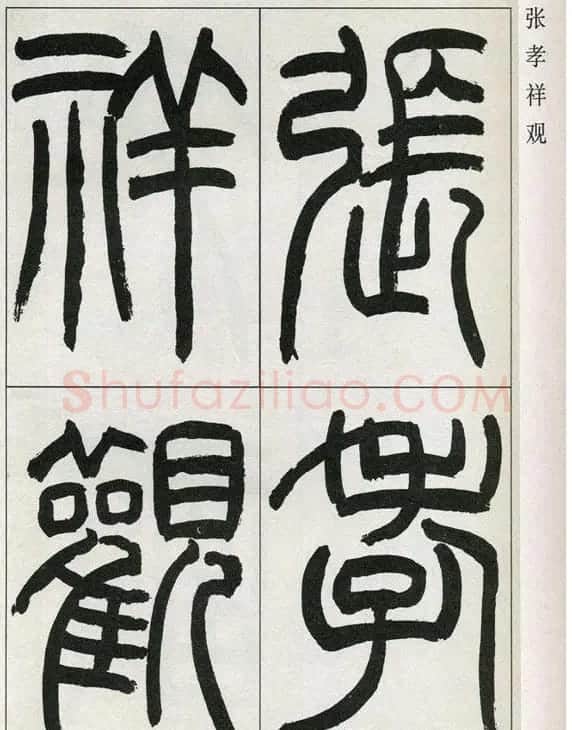 張孝
祥觀
张孝祥观
Shufaziliao.COM